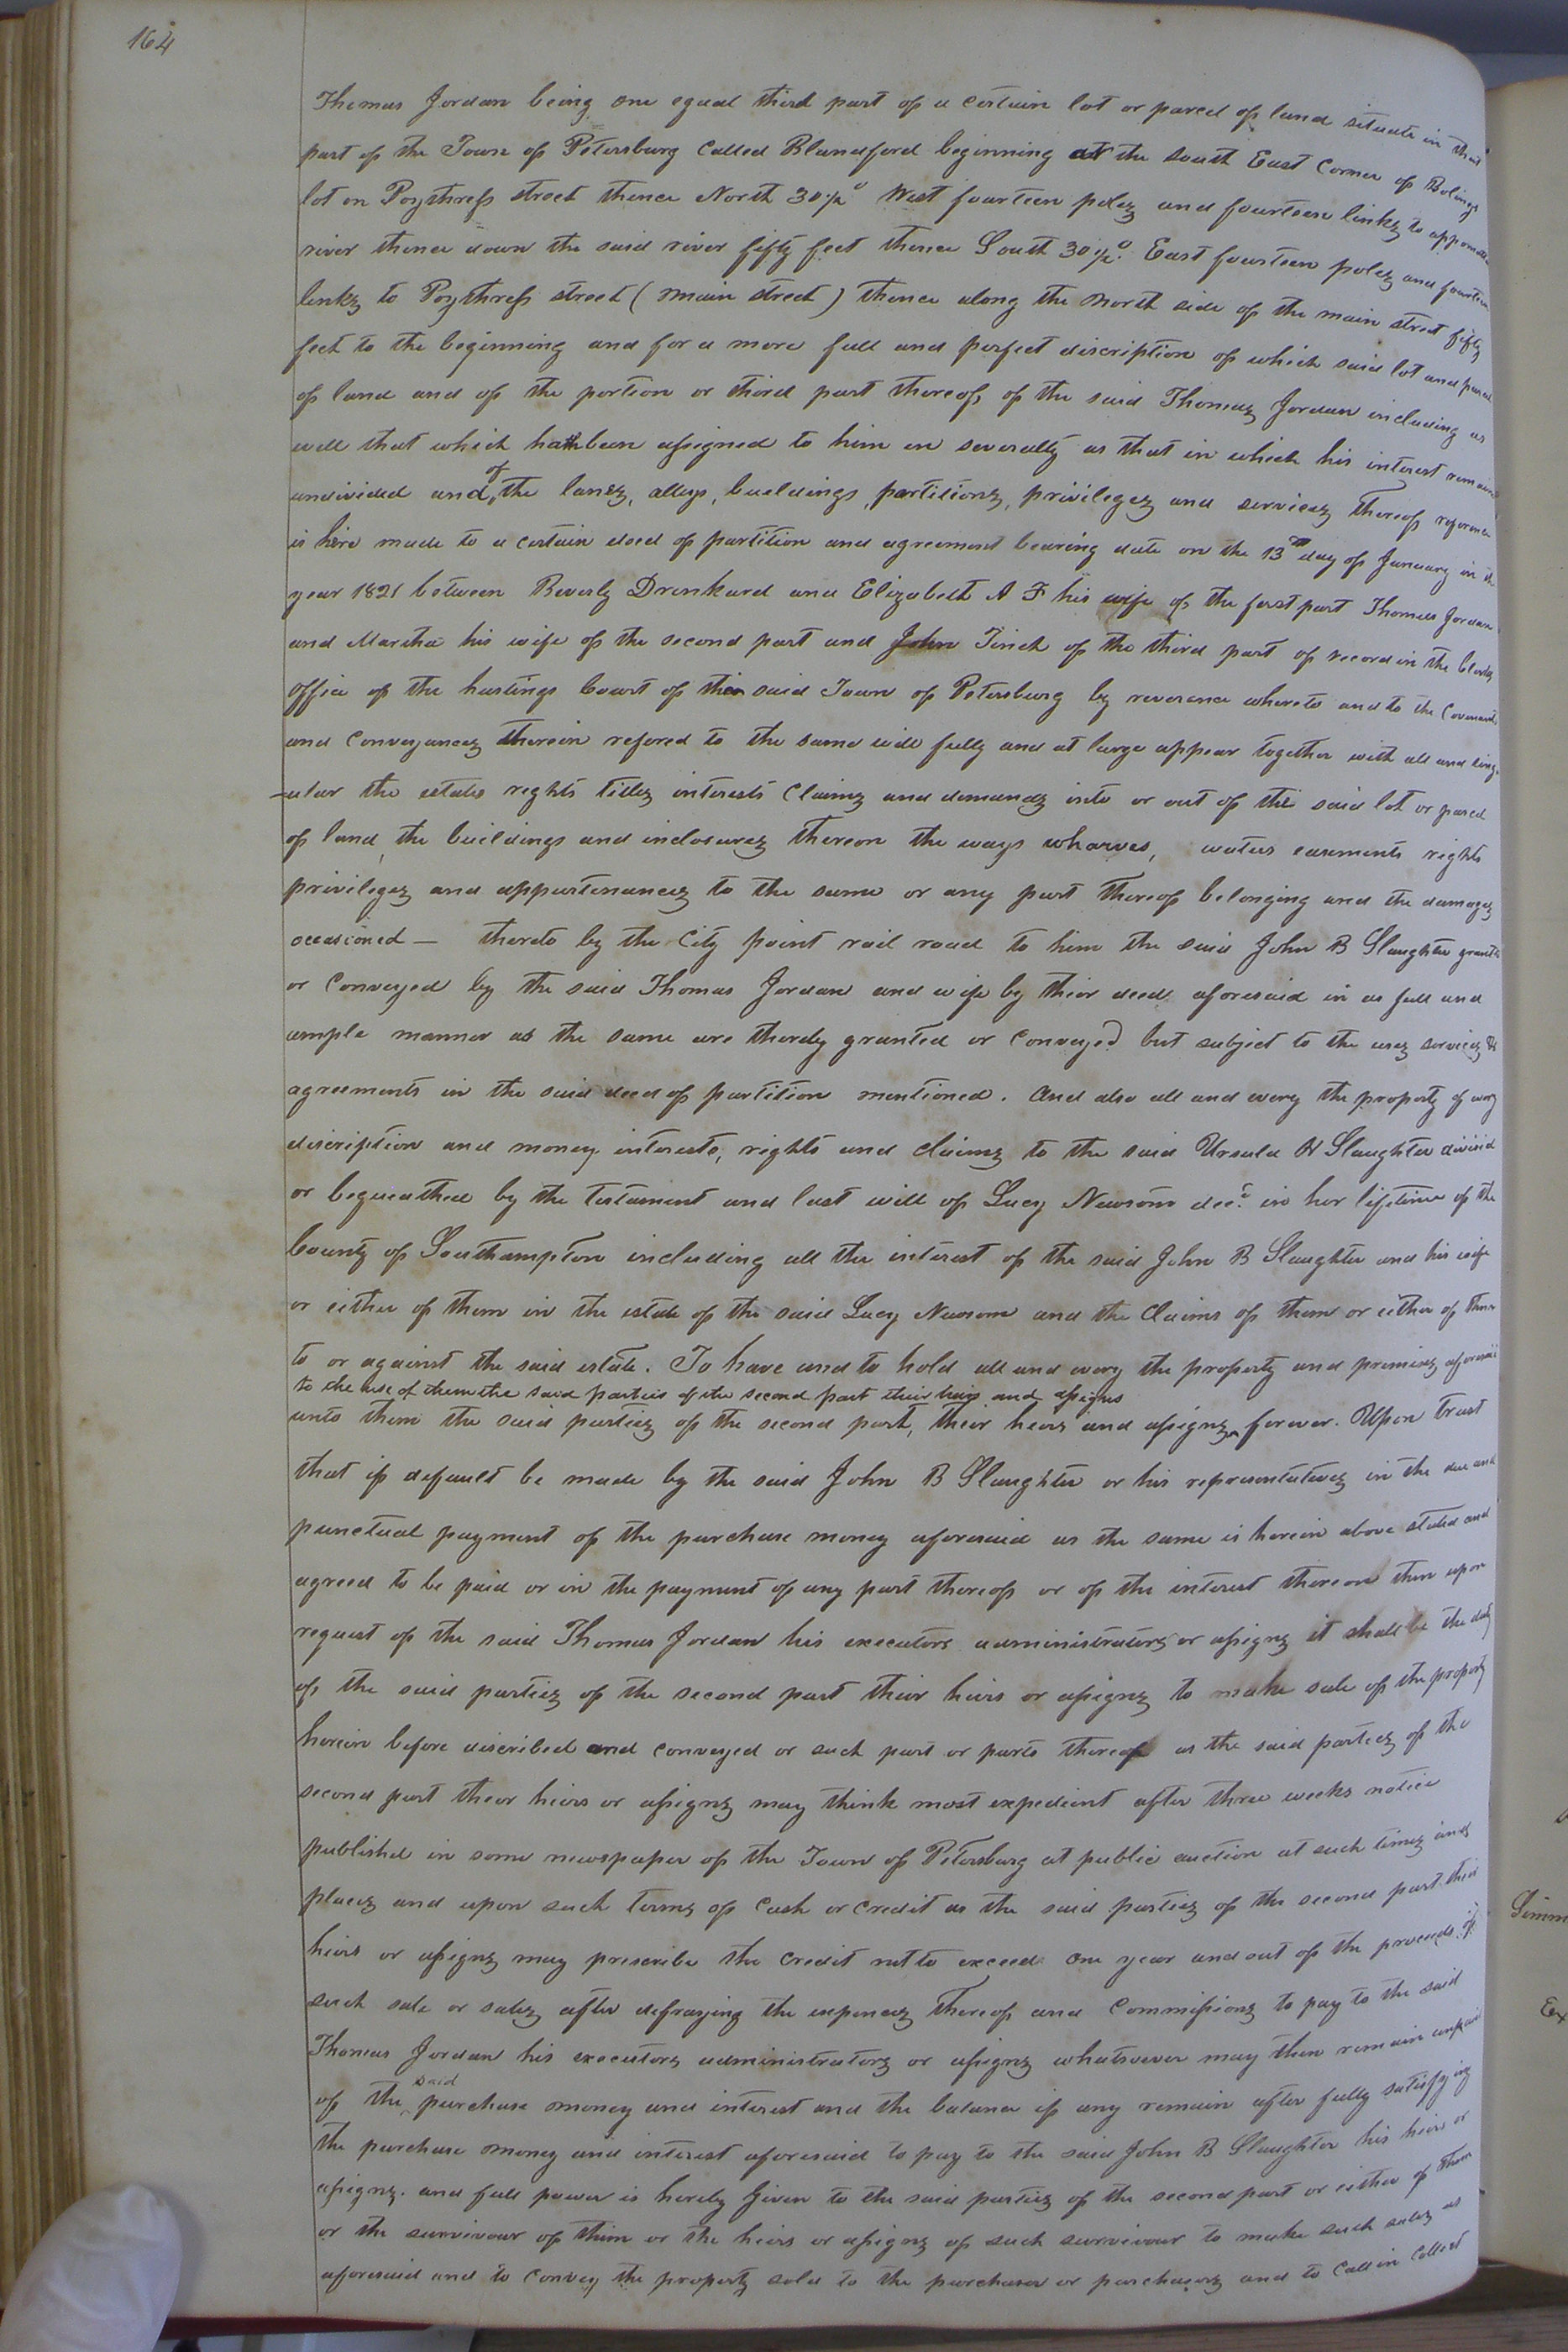 164
Thomas Jordan being one equal third part of a certain lot or parcel of land situate in that
part of the Town of Petersburg Called Blandford beginning at the south East Corner of Bolings
lot on Poythress street thence North 30½° West fourteen poles and fourteen links to appomattox
river thence down the said river fifty feet thence South 30½° East fourteen poles and fourteen
links to Poythress street (main street) thence along the North side of the main street fifty
feet to the beginning and for a more full and perfect discription of which said lot and parcel
of land and of the portion or third part thereof of the said Thomas Jordan including as
well that which hath been assigned to him in severalty as that in which his interest remains
undivided and of the lanes, alleys, buildings, partitions, privileges and services thereof reference
is here made to a certain deed of partition and agreement bearing date on the 13th day of January in the
year 1821 between Beverly Drinkard and Elizabeth A F his wife of the first part Thomas Jordan
and Martha his wife of the second part and John Tinch of the third part of record in the Clerks
office of the hustings Court of the said Town of Petersburg by reverence whereto and to the Covenants
and Conveyances therein refered to the same will fully and at large appear together with all and sing-
-ular the estate rights titles interests Claims and demands into or out of the said lot or parcel
of land, the buildings and inclosures thereon the ways wharves, waters easements rights
privileges and appurtenances to the same or any part thereof belonging and the damages
occasioned — thereto by the City point rail road to him the said John B Slaughter granted
or Conveyed by the said Thomas Jordan and wife by their deed aforesaid in as full and
ample manner as the same are thereby granted or Conveyed but subject to the uses services &
agreements in the said deed of partition mentioned. And also all and every the property of every
discription and money interests, rights and claims to the said Ursula H Slaughter devisd
or bequeathed by the testament and last will of Lucy Newsom decd. in her lifetime of the
County of Southampton including all the interest of the said John B Slaughter and his wife
or either of them in the estate of the said Lucy Newsom and the Claims of them or either of them
to or against the said estate. To have and to hold all and every the property and premises aforesaid
to the use of them the said parties of the second part their heirs and assigns
unto them the said parties of the second part, their heirs and assigns forever. Upon trust
that if default be made by the said John B Slaughter or his representatives in the due and
punctual payment of the purchase money aforesaid as the same is herein above stated and
agreed to be paid or in the payment of any part thereof or of the interest thereon then upon
request of the said Thomas Jordan his executors administrators or assigns it shall be the duty
of the said parties of the second part their heirs or assigns to make sale of the property
herein before discribed and conveyed or such part or parts thereof as the said parties of the
second part their heirs or assigns may think most expedient after three weeks notice
published in some newspaper of the Town of Petersburg at public auction at such times and
places and upon such terms of Cash or Credit as the said parties of the second part their
heirs or assigns may prescribe the Credit not to exceed one year and out of the proceeds of
such sale or sales after defraying the expences thereof and Commissions to pay to the said
Thomas Jordan his executors administrators or assigns whatsoever may then remain unpaid
of the said purchase money and interest and the balance if any remain after fully satisfying
the purchase money and interest aforesaid to pay to the said John B Slaughter his heirs or
assigns. and full power is hereby Given to the said parties of the second part or either of them
or the survivour of them or the heirs or assigns of such survivour to make such sales as
aforesaid and to Convey the property sold to the purchaser or purchasers and to Call in Collect